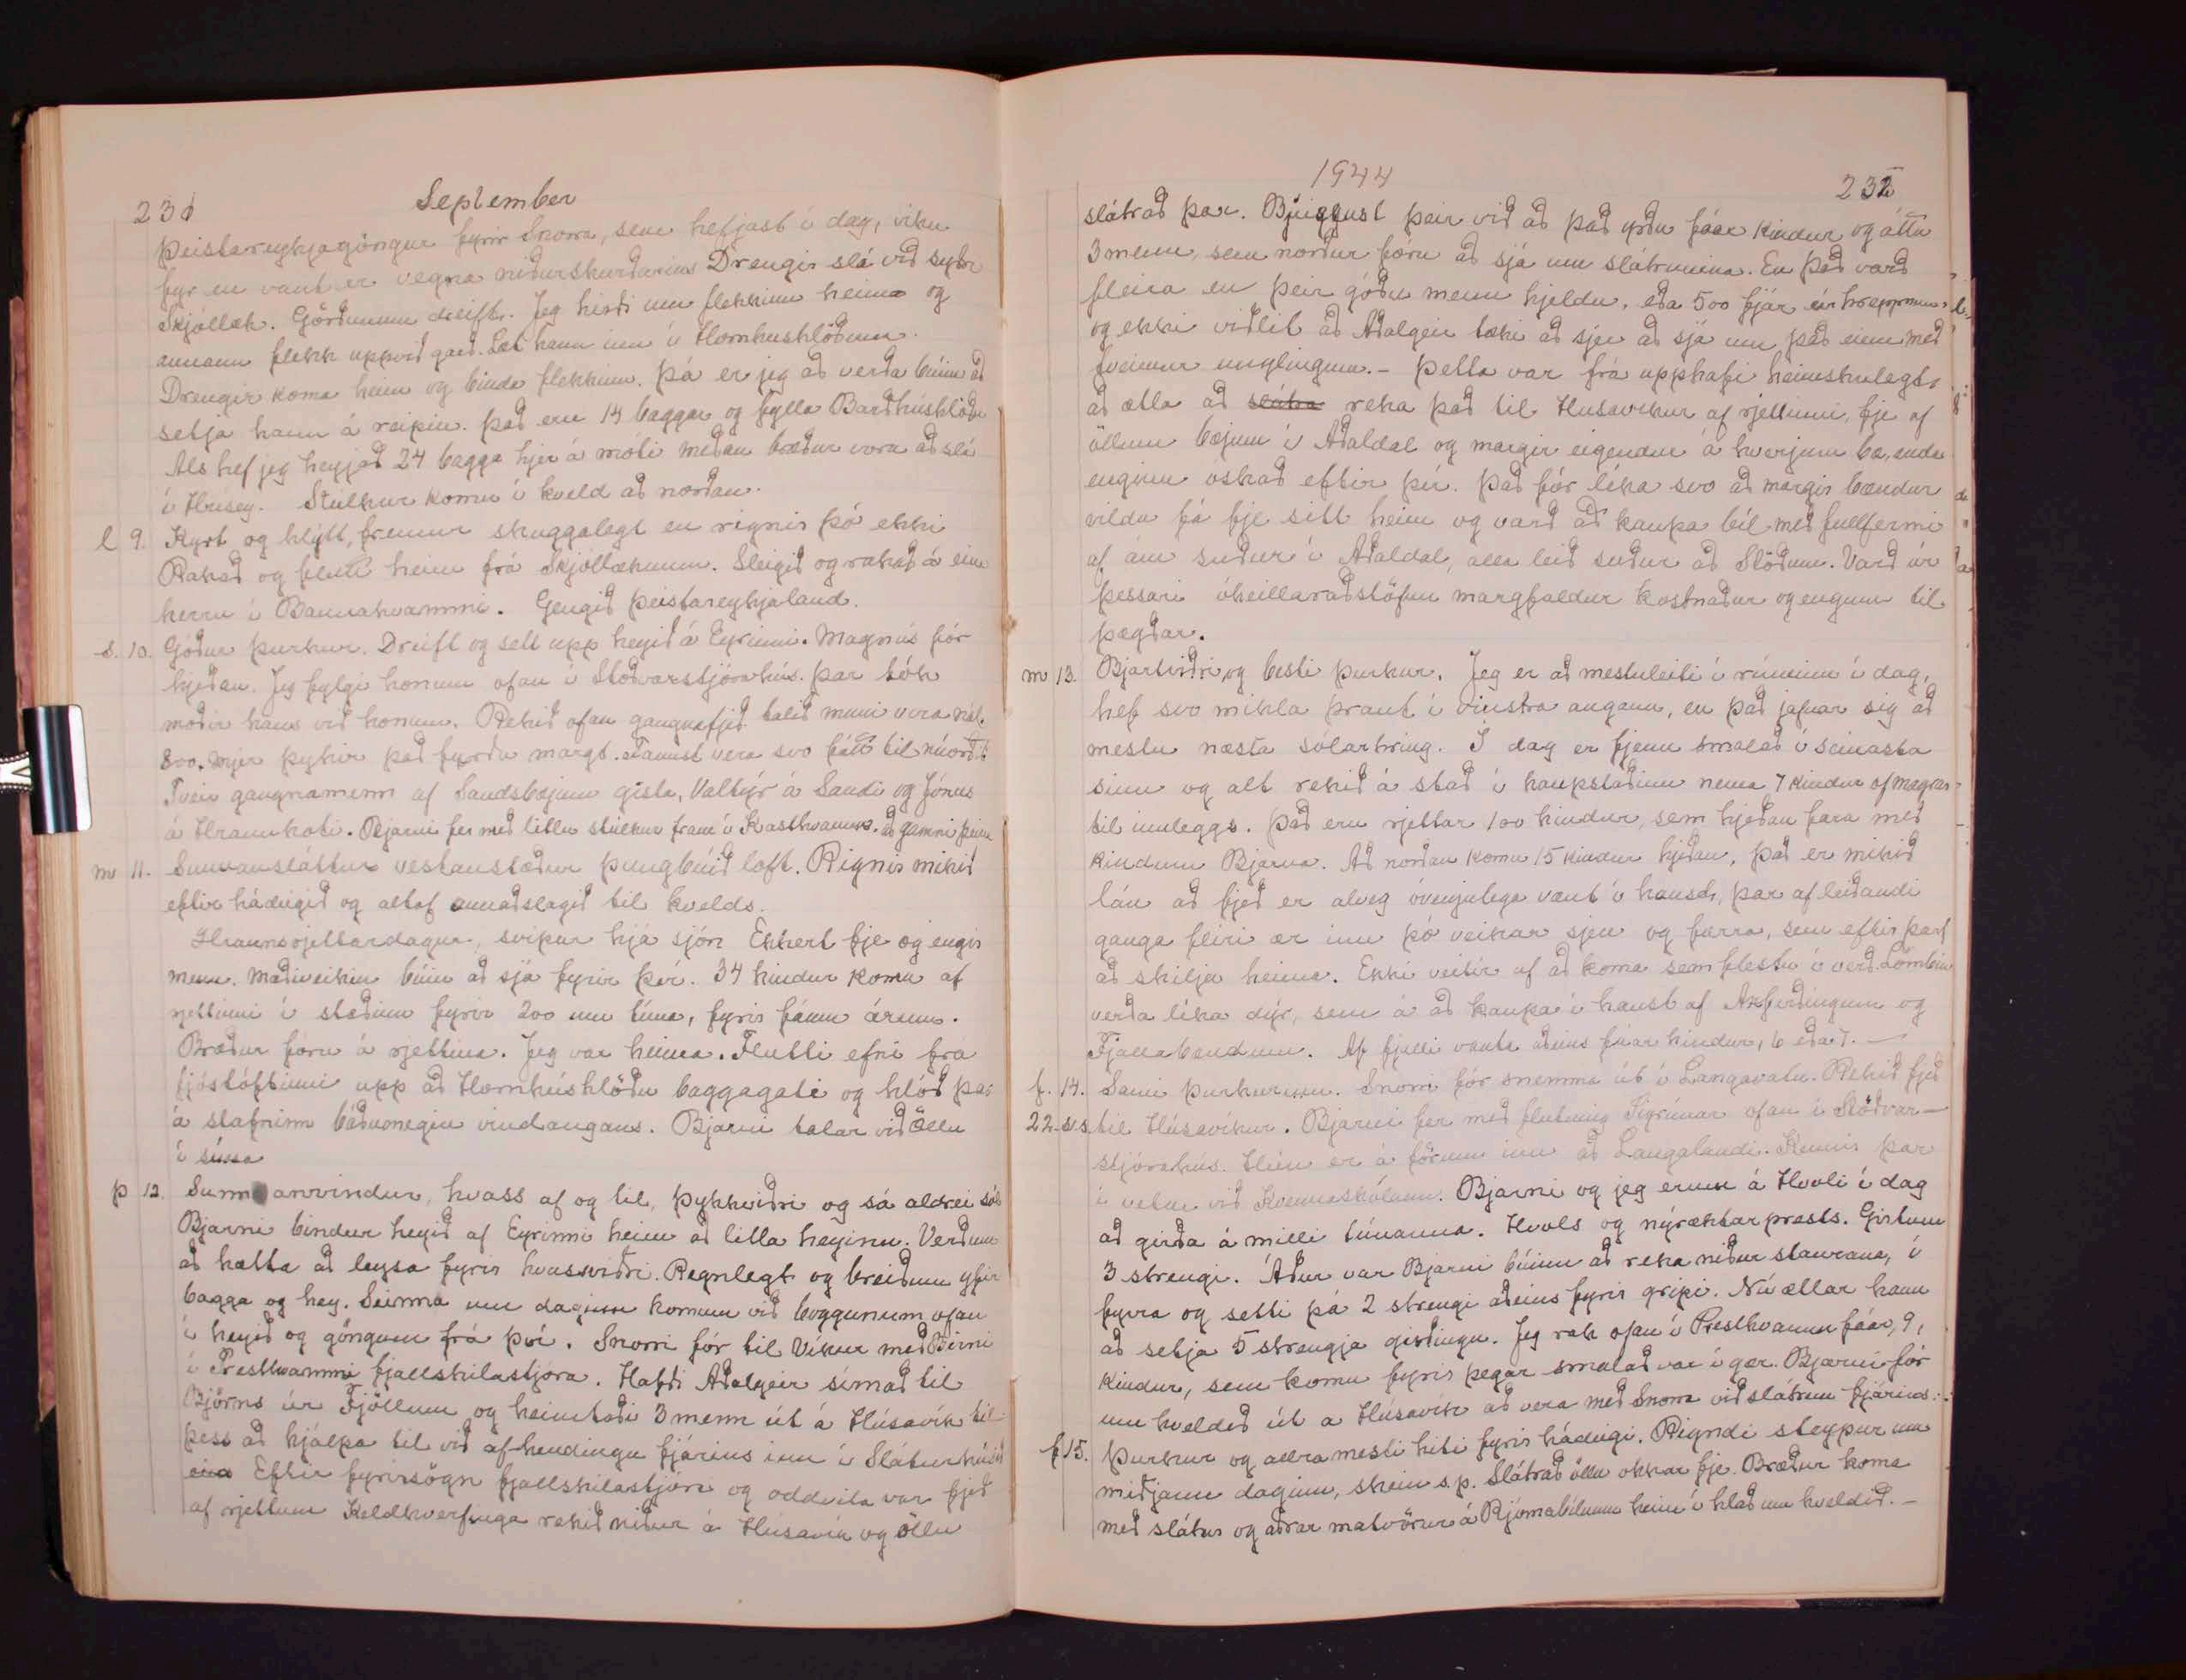 231 September
Þeistareykjagöngur fyrir Snorra, sem hefjast í dag, viku
fyr en vant er vegna niðurskurðarins Drengir slá við syðri
Skjóllæk. Görðunum dreift. Jeg hirði um flekkinn heima og
annann flekk uppvið garð. Læt hann inn í Hornhushlöðuna.
Drengir koma heim og binda flekkinn. Þá er jeg að verða búinn að
setja hann á reipin. Það eru 14 baggar og fylla Barðhúshlöðu
Als hef jeg heyjað 24 bagga hjer á móti meðan bræður vora að slá
í Hrísey. Stúlkur komu í kveld að norðan.
l 9. Kyrt og hlýtt, fremur skuggalegt en rignir þó ekki
Rakað og flutt heim frá Skjóllæknum. Sleigið og rakað á einu
herru í Bannahvammi. Gengið Þeistareykjaland.
s. 10. Góður þurkur. Dreift og sett upp heyið á Eyrinni. Magnús fór
hjeðan. Jeg fylgi honum ofan í Stöðvarstjórahús. Þar tók
móðir hans við honum. Rekið ofan gangnafjeð talið muni vera nál.
800. Mjer þykir það furðu margt. Fanst vera svo fátt til núorðið
Tveir gangnamenn af Sandsbæjum gista, Valtýr á Sandi og Jónas
á Hraunkoti. Bjarni fer með litlu stúlkur fram í Kasthvamm. að gamni þeim
m 11. Sunnansláttur vestanstæður þungbúið loft. Rignir mikið
eftir hádegið og altaf annaðslagið til kvelds.
Hraunsrjettardagur, svipur hjá sjón Ekkert fje og engir
menn. Mæðiveikin búin að sjá fyrir því. 34 kindur komu af
rjettinni í staðinn fyrir 200 um tíma, fyrir fáum árum.
Bræður fóru á rjettina. Jeg var heima. Flutti efni frá
fjóstóftinni upp að Hornhúshlöðu baggagati og hlóð þar
á stafninn báðumegin vindaugans. Bjarni talar við Öllu
í síma
þ 12. Sunnanvindur, hvass af og til, þykkviðri og sá aldrei sól
Bjarni bindur heyið af Eyrinni heim að litla heyinu. Verðum
að hætta að leysa fyrir hvassviðri. Regnlegt og breiðum yfir
bagga og hey. Seinna um daginn komum við böggunum ofan
í heyið og göngum frá því. Snorri fór til Víkur með Birni
í Presthvammi fjallskilastjóra. Hafði Aðalgeir símað til
Björns úr Fjöllum og heimtaði 3 menn út á Húsavík til
þess að hjálpa til við afhendingu fjárins inn í Sláturhúsið
Eftir fyrirsögn fjallskilastjóra og oddvita var fjeð
af rjettum Keldhverfinga rekið niður á Húsavík og öllu
1944 232
slátrað þar. Bjuggust þeir við að það yrðu fáar kindur og áttu
3 menn, sem norður fóru að sjá um slátrunina. En það varð
fleira en þeir góðu menn hjeldu, eða 500 fjár úr hreppnum
og ekki viðlit að Aðalgeir tæki að sjer að sjá um það einn með
tveimur unglingum. - Þetta var frá upphafi heimskulegt,
að ætla að slátra reka það til Husavikur af rjettinni, fje af
öllum bæjum í Aðaldal og margir eigendur á hverjum bæ, enda
enginn óskað eftir því. Það fór líka svo að margir bændur
vildu fá fje sitt heim og varð að kaupa bíl með fullfermi
af ám suður í Aðaldal, alla leið suður að Slöðum. Varð úr
þessari óheillaráðstöfun margfaldur kostnaður og engum til
þægðar.
m 13. Bjartviðri og besti þurkur. Jeg er að mestuleiti í rúminu í dag,
hef svo mikla þraut í vinstra auganu, en það jafnar sig að
mestu næsta sólarhring. I dag er fjenu smalað í seinasta
sinn og alt rekið á stað í kaupstaðinn nema 7 kindur of magrar
til innleggs. Það eru rjettar 100 kindur, sem hjeðan fara með
kindum Bjarna. Að norðan komu 15 kindur hjeðan, það er mikið
lán að fjeð er alveg óvenjulega vænt í haust, þar af leiðandi
ganga fleiri ær inn þó veikar sjeu og færra, sem eftir þarf
að skilja heima. Ekki veitir af að koma sem flestu í verð. Lömbin
verða líka dýr, sem á að kaupa í haust af Axfirðingum og
Fjallabændum. Af fjalli vanta aðins fáar kindur, 6 eða 7. -
f. 14. Sami þurkurinn. Snorri fór snemma út í Langavatn. Rekið fjeð
22. s.s til Húsavíkur. Bjarni fer með flutning Sigrúnar ofan í Stöðvar-
stjórahús. Hún er á förum inn að Laugalandi. Kennir þar
í vetur við Kvennaskólann. Bjarni og jeg erum á Hvoli í dag
að girða á milli túnanna. Hvols og nýræktar prests. Girtum
3 strengi. Áður var Bjarni búinn að reka niður staurana, í
fyrra og setti þá 2 strengi aðeins fyrir gripi. Nú ætlar hann
að setja 5 strengja girðingu. Jeg rak ofan í Presthvamm fáar, 9,
kindur, sem komu fyrir þegar smalað var í gær. Bjarni fór
um kveldið út a Húsavík að vera með Snorra við slátrun fjárins.
f 15. Þurkur og allra mesti hiti fyrir hádegi. Rigndi steypur um
miðjann daginn, skein s.p. Slátrað öllu okkar fje. Bræður koma
með slátur og aðrar matvörur á Rjómabílnum heim í hlað um kveldið. -